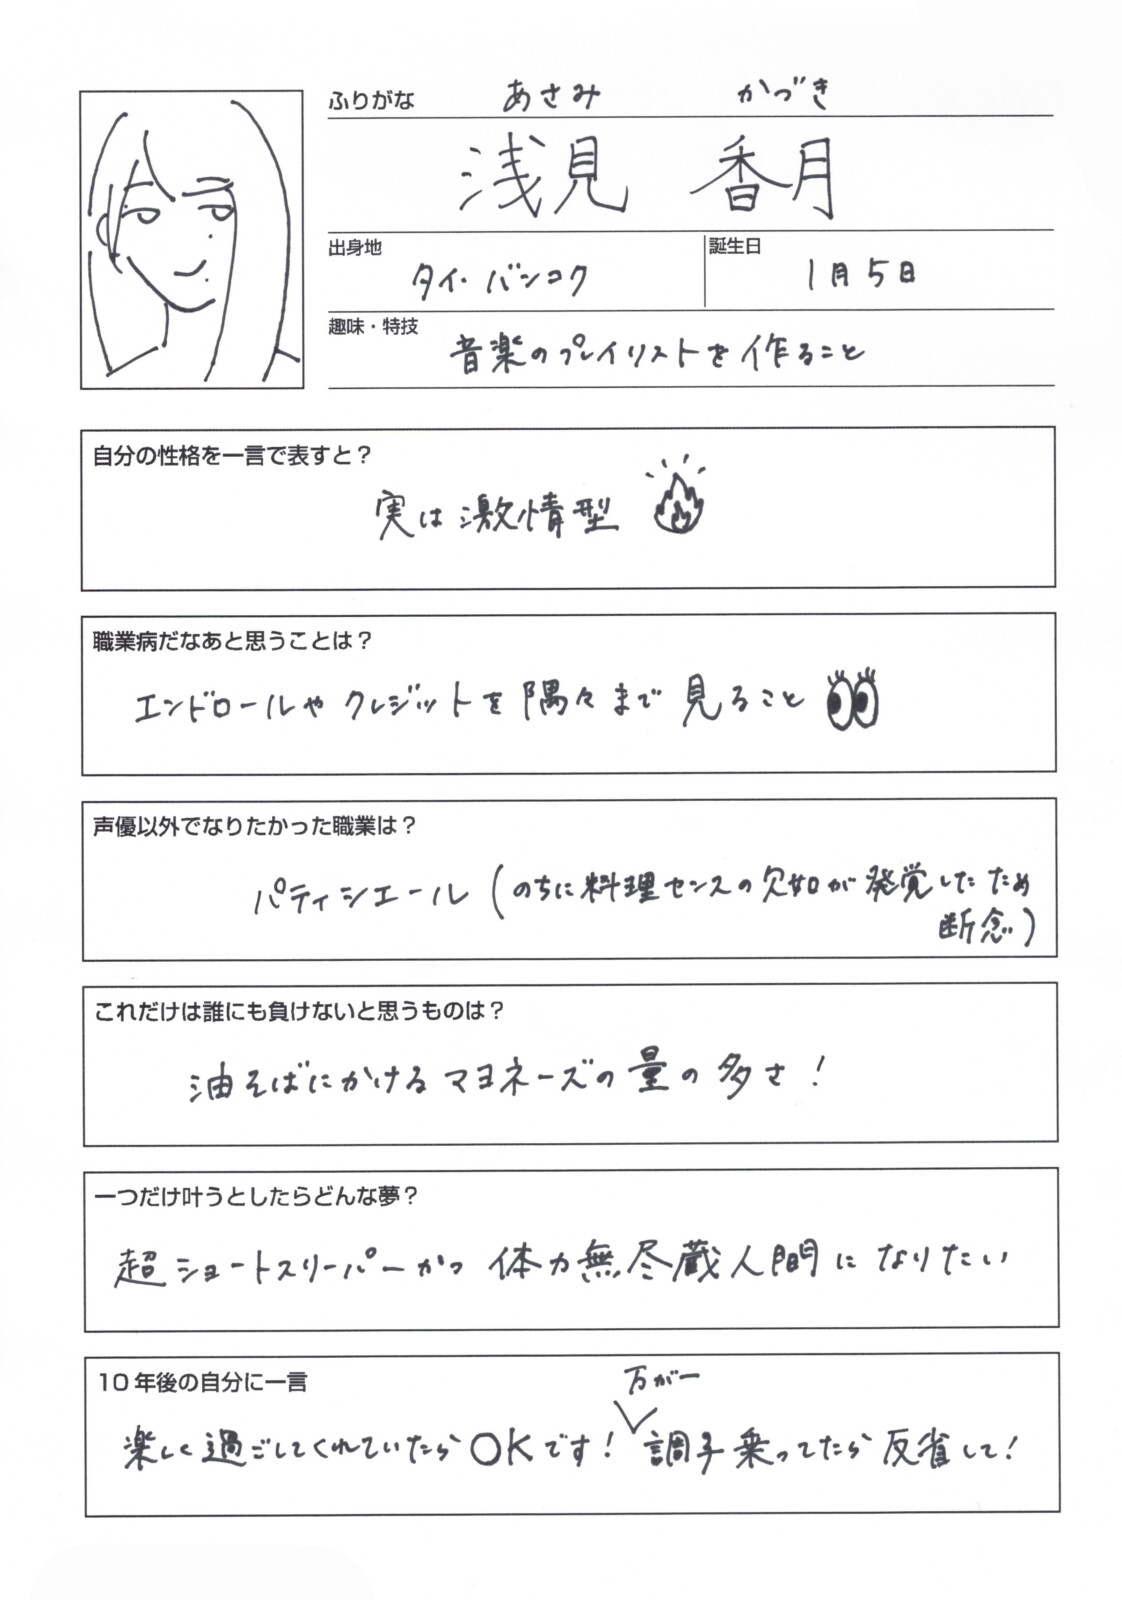 ふりがな あさみ かづき
浅見 香月
出身地 タイ・バンコク 誕生日 1月5日
趣味・特技 音楽のプレイリストを作ること
自分の性格を一言で表すと？
実は激情型
職業病だなあと思うことは？
エンドロールやクレジットを隅々まで見ること
声優以外でなりたかった職業は？
パティシエール（のちに料理センスの欠如が発覚したため
断念）
これだけは誰にも負けないと思うものは？
油そばにかけるマヨネーズの量の多さ！
一つだけ叶うとしたらどんな夢？
超ショートスリーパーかつ体力無尽蔵人間になりたい
10年後の自分に一言
万が一
楽しく過ごしてくれていたらOKです！調子乗ってたら反省して！